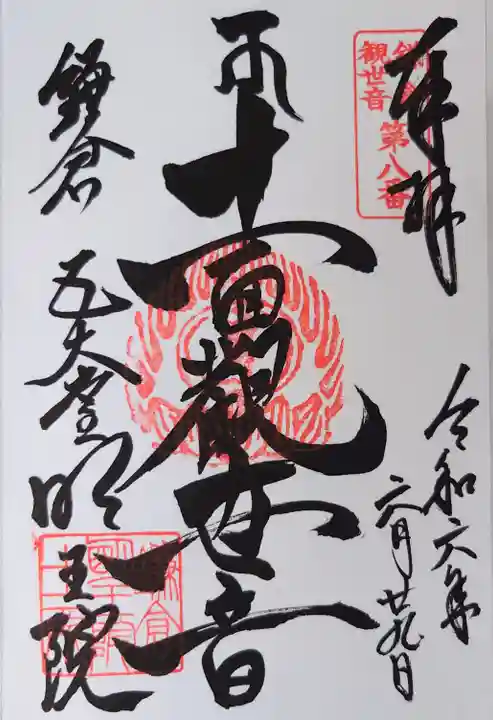 奉拝
鎌倉
観世音
第八番
令和六年
六月廿九日
十一面観世音
鎌倉
五大堂明王院